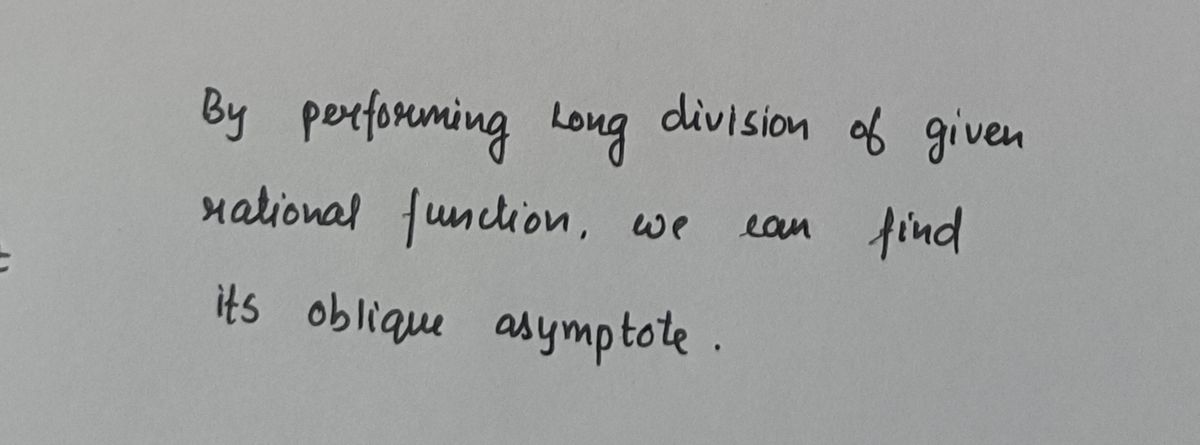 By performing Long division of given
rational function, we can find
its oblique asymptote.